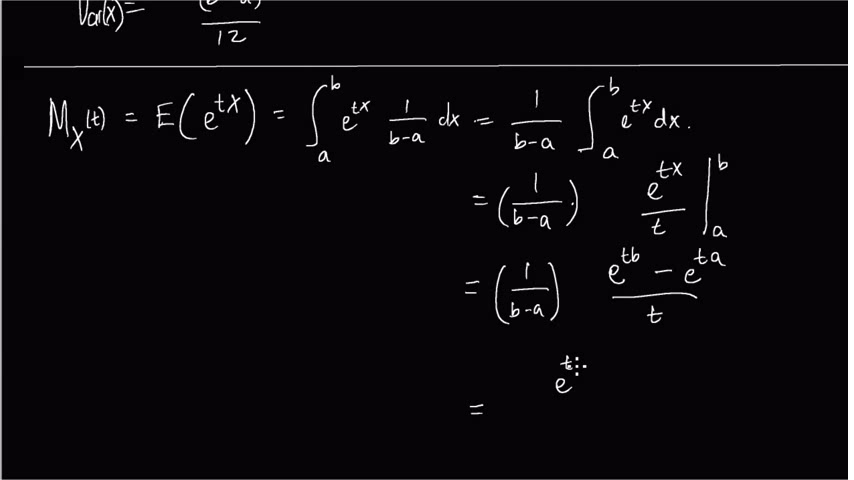 Var(x)= (b-a)² / 12
M_X(t) = E(e^{tX}) = ∫_a^b e^{tx} 1/(b-a) dx = 1/(b-a) ∫_a^b e^{tx} dx.
= (1/(b-a)) e^{tx}/t |_a^b
= (1/(b-a)) (e^{tb} - e^{ta})/t
= e^t